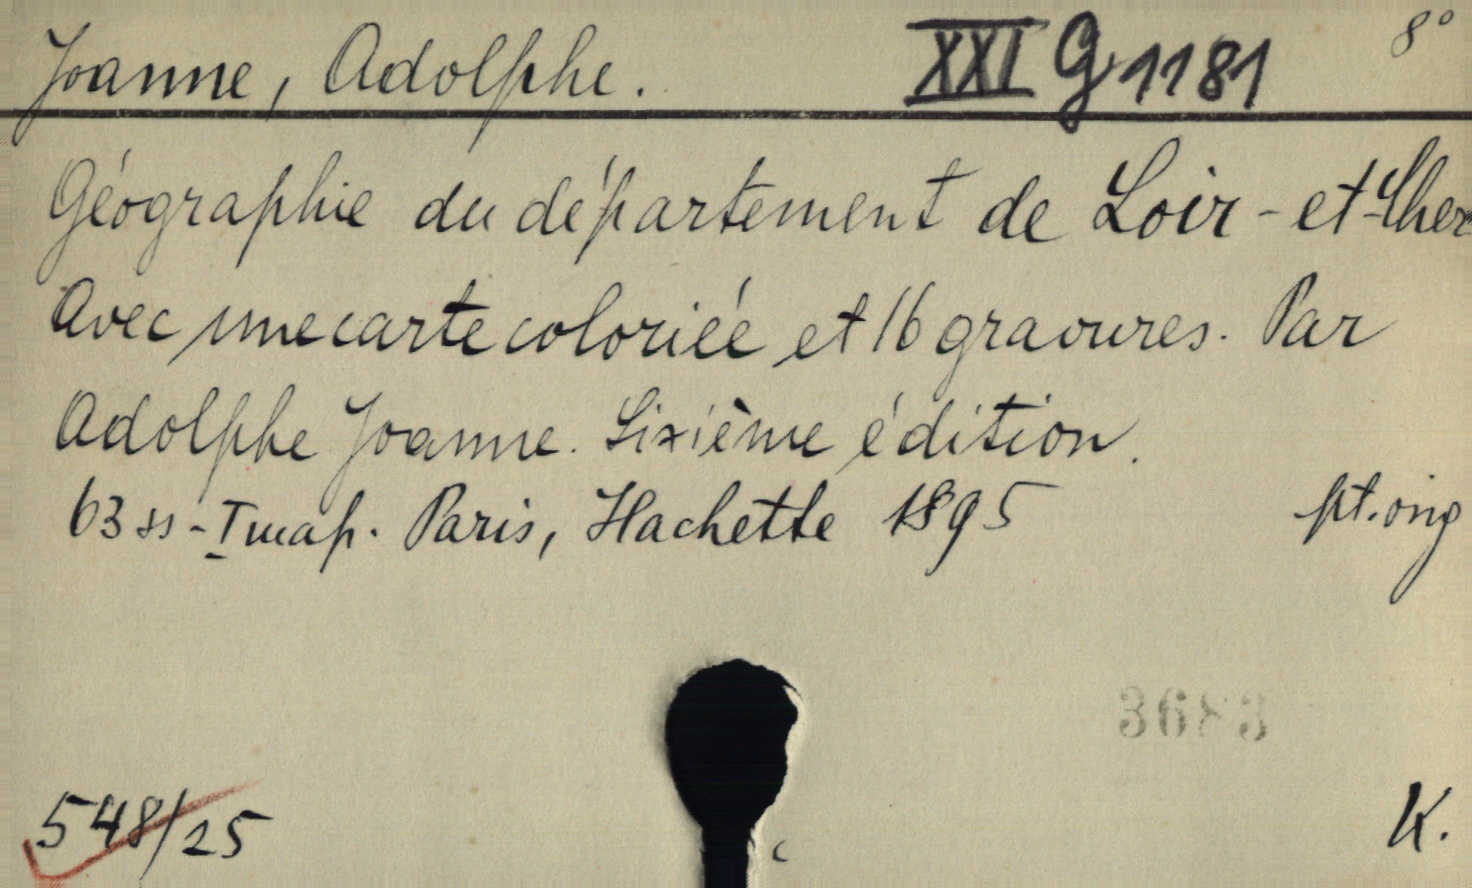 Joanne, Adolphe. XXI G 1181 8°
Géographie du département de Loir-et-Cher
Avec une carte coloriée et 16 gravures. Par
Adolphe Joanne. Sixième édition.
63 ss - I map. Paris, Hachette 1895 pt. orig
3683
548/25 K.